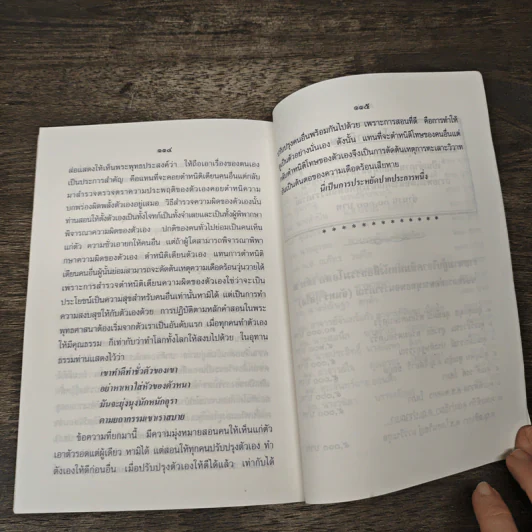 ๑๑๔
ส่อแสดงให้เห็นพระพุทธประสงค์ว่า ให้ถือเอาเรื่องของตนเอง
เป็นประการสำคัญ คือแทนที่จะคอยตำหนิติเตียนคนอื่นแต่กลับ
มาสำรวจตรวจตราความประพฤติของตัวเองคอยตำหนิความ
บกพร่องผิดพลั้งตัวเองอยู่เสมอ วิธีสำรวจความผิดของตัวเองนั้น
ท่านสอนให้ตั้งตัวเองเป็นทั้งโจทก์เป็นทั้งจำเลยและเป็นทั้งผู้พิพากษา
พิจารณาความผิดของตัวเอง ปกติของคนทั่วไปย่อมเป็นคนเห็น
แก่ตัว ความชั่วเอายกให้คนอื่น แต่ถ้าผู้ใดสามารถพิจารณาพิพา
กษาความผิดของตัวเอง ตำหนิตัวเอง แทนการตำหนิติ
เตียนคนอื่นผู้นั้นย่อมสามารถจะตัดต้นเหตุความเดือดร้อนวุ่นวายได้
เพราะการสำรวจตำหนิติเตียนความผิดของตัวเองใช่ว่าจะเป็น
ประโยชน์เป็นความสุขสำหรับคนอื่นเท่านั้นหามิได้ แต่เป็นการทำ
ความสงบสุขให้กับตัวเองด้วย การปฏิบัติตามหลักคำสอนในพระ
พุทธศาสนาต้องเริ่มจากตัวเราเป็นอันดับแรก เมื่อทุกคนทำตัวเอง
ให้มีคุณธรรม ก็เท่ากับว่าทำโลกทั้งโลกให้สงบไปด้วย ในอุทาน
ธรรมท่านแสดงไว้ว่า
เขาทำดีทำชั่วตัวของเขา
อย่าหาเหาใส่หัวของตัวหนา
มันจะยุ่งนุงนักหนักอุรา
ตามยถากรรมเขาเราสบาย
ข้อความที่ยกมานี้ มีความมุ่งหมายสอนคนให้เห็นแก่ตัว
เอาตัวรอดแต่ผู้เดียว หามิได้ แต่สอนให้ทุกคนปรับปรุงตัวเอง ทำ
ตัวเองให้ดีก่อนอื่น เมื่อปรับปรุงตัวเองให้ดีได้แล้ว เท่ากับได้
๑๑๕
ปรุงคนอื่นพร้อมกันไปด้วย เพราะการสอนที่ดี คือการทำให้
เป็นตัวอย่างนั่นเอง ดังนั้น แทนที่จะตำหนิโทษของคนอื่นแต่
ตำหนิโทษของตัวเองจึงเป็นการตัดต้นเหตุการทะเลาะวิวาท
เป็นต้นตอของความเดือดร้อนเสียหาย
นี่เป็นการประหยัดปากประการหนึ่ง